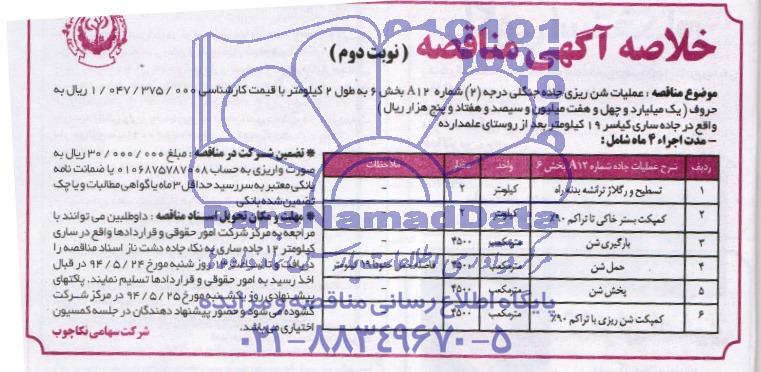 خلاصه آگهی مناقصه (نوبت دوم)
موضوع مناقصه : عملیات شن ریزی جاده جنگلی درجه (۲) شماره A۱۲ بخش ۶ به طول ۲ کیلومتر با قیمت کارشناسی ۱/۰۴۷/۳۷۵/۰۰۰ ریال به
حروف (یک میلیارد و چهل و هفت میلیون و سیصد و هفتاد و پنج هزار ریال)
واقع در جاده ساری کیاسر ۱۹ کیلومتر بعد از روستای علمدارده
- مدت اجراء ۴ ماه شامل :
ردیف شرح عملیات جاده شماره A۱۲ بخش ۶ واحد مقدار ملاحظات
۱ تسطیح و رگلاژ ترانشه بدنه راه کیلومتر ۲ -
۲ کمپکت بستر خاکی تا تراکم ۹۰٪ کیلومتر ۲ -
۳ بارگیری شن مترمکعب ۴۵۰۰ -
۴ حمل شن مترمکعب ۴۵۰۰ فاصله حمل حدود ۱۹ کیلومتر
۵ پخش شن مترمکعب ۴۵۰۰ -
۶ کمپکت شن ریزی با تراکم ۹۰٪ مترمکعب ۴۵۰۰ -
* تضمین شرکت در مناقصه : مبلغ ۳۰/۰۰۰/۰۰۰ ریال به
صورت واریزی به حساب ۰۱۰۶۸۷۵۷۸۷۰۰۸ یا ضمانت نامه
بانکی معتبر به سررسید حداقل ۳ ماه یا گواهی مطالبات و یا چک
تضمین شده بانکی
* مهلت و مکان تحویل اسناد مناقصه : داوطلبین می توانند با
مراجعه به مرکز شرکت امور حقوقی و قراردادها واقع در ساری
کیلومتر ۱۲ جاده ساری به نکا، جاده دشت ناز اسناد مناقصه را
دریافت و تا ساعت ۱۳ روز شنبه مورخ ۹۴/۵/۲۴ در قبال
اخذ رسید به امور حقوقی و قراردادها تسلیم نمایند. پاکتهای
پیشنهادی روز یکشنبه مورخ ۹۴/۵/۲۵ در مرکز شرکت
گشوده می شود و حضور پیشنهاد دهندگان در جلسه کمسیون
اختیاری می باشد.
شرکت سهامی نکاچوب
ParsNamadData
پایگاه اطلاع رسانی مناقصه و مزایده
۰۲۱-۸۸۳۴۹۶۷۰-۵